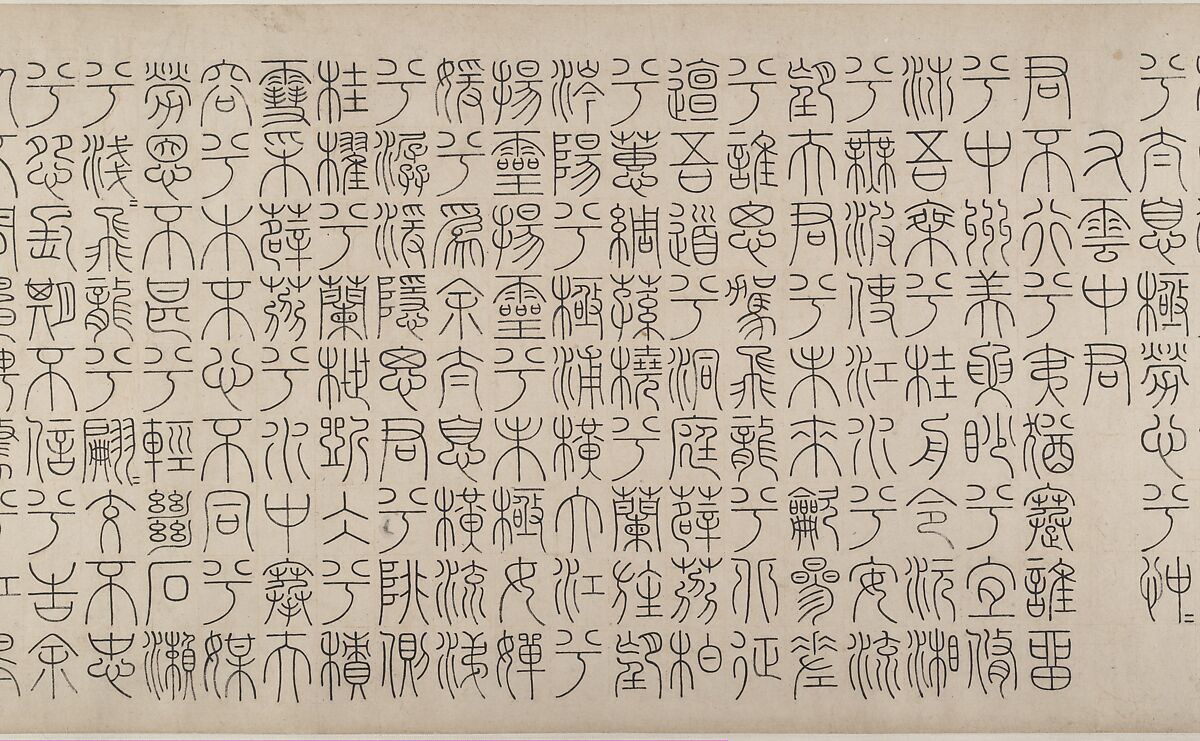 兮太息極勞心兮忡〻
又雲中君
君不行兮夷猶蹇誰留
兮中州美要眇兮宜脩
沛吾乘兮桂舟令沅湘
兮無波使江水兮安流
望夫君兮未來龡參差
兮誰思駕飛龍兮北征
邅吾道兮洞庭薜荔柏
兮蕙綢蓀橈兮蘭旌望
涔陽兮極浦橫大江兮
揚靈揚靈兮未極女嬋
媛兮爲余太息橫流涕
兮潺湲隱思君兮陫側
桂櫂兮蘭枻斲仌兮積
雪采薜荔兮水中搴夫
容兮木末心不同兮媒
勞恩不甚兮輕絕石瀨
兮淺〻飛龍兮翩〻交不忠
兮怨長期不信兮告余